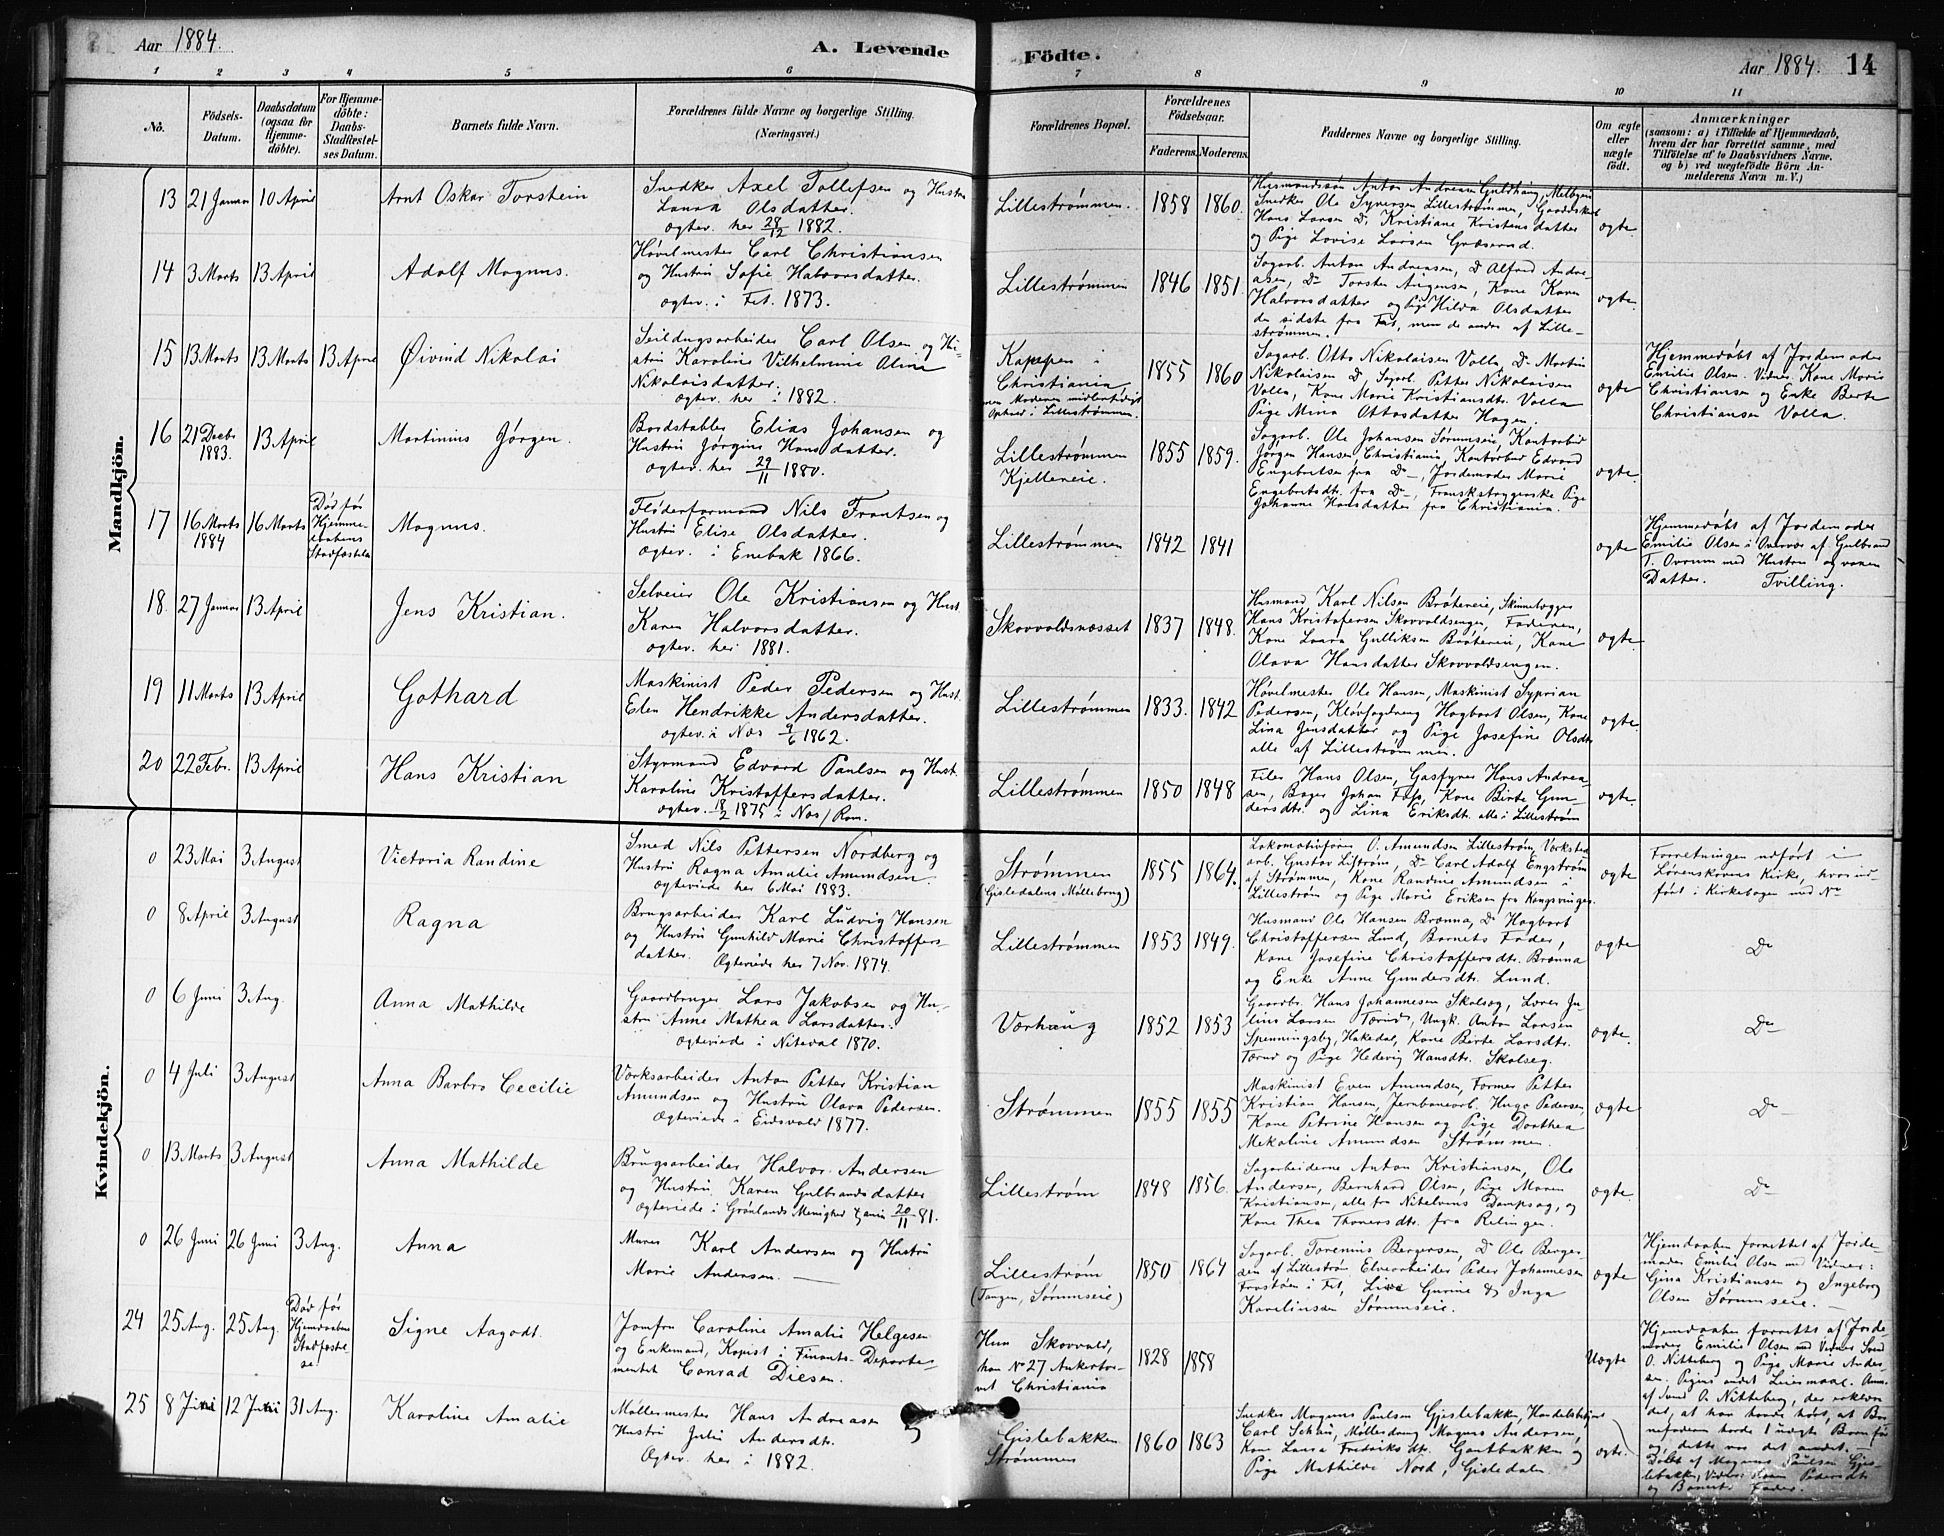 Aar 1884.
A. Levende
Födte.
Aar 1884.
14
1 2 3 4 5 6 7 8 9 10 11
No.
Födsels-Datum.
Daabsdatum (ogsaa for Hjemme-döbte).
For Hjemme-döbte: Daabs-Stadfæstel-ses Datum.
Barnets fulde Navn.
Forældrenes fulde Navne og borgerlige Stilling. (Næringsvei.)
Forældrenes Bopæl.
Forældrenes Födselsaar.
Faderens. Moderens.
Faddernes Navne og borgerlige Stilling.
Om ægte eller uægte födt.
Anmærkninger
(saasom: a) i Tilfælde af Hjemmedaab, hvem der har forrettet samme, med Tilföielse af to Daabsvidners Navne, og b) ved uægtefödte Börn An-melderens Navn m. V.)
Mandkjön.
13 21 Januar 10 April Arnt Oskar Torstein
Snedker Axel Tollefsen og Hustru
Laura Olsdatter.
ægtev. her 28/12 1882.
Lillestrømmen. 1858 1860.
Husmandssøn Anton Andreasen Guldhaug, Melbyeie
Snedker Ole Syversen Lillestrømmen, Gaardsskarl
Hans Larsen Do, Kristiane Kristensdatter
og Pige Lovise Larsen Græsrud.
ægte.
14 3 Marts 13 April Adolf Magnus.
Høvelmester Carl Christiansen
og Hustru Sofie Halvorsdatter.
ægtev. i Fet. 1873.
Lillestrømmen 1846 1851.
Sagarb. Anton Andreasen, Do Alfred Andre-
asen, Do Torsten Augensen, Kone Karen
Halvorsdatter og Pige Hilda Olsdatter
de sidste fra Fet, men de andre af Lille-
strømmen.
ægte.
15 13 Marts 13 Marts 13 April Øivind Nikolai
Seildugsarbeider Carl Olsen og Hu-
stru Karoline Vilhelmine Aline
Nikolaisdatter.
ægtev. her i 1882.
Kappen i
Christiania
men Moderen midlertidigt
Ophold i Lillestrømmen.
1855 1860
Sagarb. Otto Nikolaisen Volla, Do Martin
Nikolaisen Do, Sagarb. Petter Nikolaisen
Volla, Kone Marie Kristiansdt. Volla
Pige Mina Ottosdatter Hagen.
ægte
Hjemmedøbt af Jordemoder
Emilie Olsen. Vidner, Kone Marie
Christiansen og Enke Berte
Christiansen Volla.
16 21 Decbr 1883. 13 April Martinius Jørgen.
Bordstabler Elias Johansen og
Hustru Jørgine Hansdatter.
ægtev. her 29/11 1880.
Lillestrømmen
Kjellereie.
1855 1859.
Sagarb. Ole Johansen Sørumseie, Kontorbud
Jørgen Hansen Christiania Kontorbud Edvard
Engebretsen fra Do, Jordemoder Marie
Engebretsdt. fra Do, Franskstrygerske Pige
Johanne Hansdatter fra Christiania.
ægte.
17 16 Marts 1884 16 Marts
Død før
Hjemme-
daabens
Stadfæstelse
Magnus.
Fløderformand Nils Frantsen og
Hustru Elise Olsdatter.
ægtev. i Enebak 1866.
Lillestrømmen 1842 1841 ægte
Hjemmedøbt af Jordemoder
Emilie Olsen i Overvær af Gulbrand
T. Ovrum med Hustru og voxen
Datter. Tvilling.
18. 27 Januar 13 April Jens Kristian.
Selveier Ole Kristiansen og Hust.
Karen Halvorsdatter.
ægtev. her 1881.
Skovvoldsnæsset 1837 1848.
Husmand Karl Nilsen Bråteneie, Skindlægger
Hans Kristofersen Skovvoldsengen, Faderen,
Kone Laura Gulliksen Bråteneie, Kone
Olava Hansdatter Skovvoldsengen.
ægte.
19 11 Marts 13 April Gothard
Maskinist Peder Pedersen og Hust.
Elen Hendrikke Andersdatter.
ægtev. i Næs 9/6 1862.
Lillestrømmen 1833. 1842
Høvelmester Ole Hansen, Maskinist Syprian
Pedersen, Hagbart Olsen, Kone
Lina Jensdatter og Pige Josefine Olsdt.
alle af Lillestrømmen.
ægte.
20 22 Febr. 13 April Hans Kristian
Styrmand Edvard Paulsen og Hust.
Karoline Kristoffersdatter.
ægtev. 18/2 1875 i Næs/Rom.
Lillestrømmen 1850 1848
Filer Hans Olsen, Gasfyrer Hans Andrea-
sen, Bager Johan Foss, Kone Birte Gun-
dersdtr. og Lina Eriksdt. alle i Lillestrøm
ægte.
Kvindekjön.
0 23 Mai 3 August Victoria Randine
Smed Nils Pettersen Nordberg og
Hustru Ragna Amalie Amundsen.
ægteviede her 6 Mai 1883.
Strømmen
(Gisledalens Møllebrug)
1855 1864.
Lokomotivfører O. Amundsen Lillestrøm, Værksted
arb. Gustav Liftrøm, Do Carl Adolf Engstrøm
af Strømmen, Kone Randine Amundsen i
Lillestrøm og Pige Marie Eriksen fra Kongsvinger.
ægte
Forretningen udført i
Lørenskovens Kirke, hvor ind-
ført i Kirkebogen med No
0 8 April 3 August Ragna
Brugsarbeider Karl Ludvig Hansen
og Hustru Gunhild Marie Christoffers-
datter. Ægteviede her 7 Nov. 1874.
Lillestrømmen 1853 1849.
Husmand Ole Hansen Brønna, Do Hagbart
Christoffersen Lund, Barnets Fader,
Kone Josefine Christoffersdt. Brønna
og Enke Anne Gundersdt. Lund.
ægte
Do
0 6 Juni 3 Aug. Anna Mathilde
Gaardbruger Lars Jakobsen og Hu-
stru Anne Mathea Larsdatter.
Ægteviede i Nitedal 1870.
Værhaug 1852 1853
Gaardbr. Hans Johannesen Skolsæg, Lærer Ju-
lius Larsen Tærud, Ungk. Anton Larsen
Spenningsby, Hakedal, Kone Birte Larsdt.
Tærud og Pige Hedevig Hansdt. Skolseg.
ægte.
Do
0 4 Juli 3 August Anna Barbro Cecilie
Værksarbeider Anton Petter Kristian
Amundsen og Hustru Olava Pedersen.
Ægteviede i Eidsvold 1877.
Strømmen 1855 1855
Maskinist Even Amundsen, Former Petter
Kristian Hansen, Jernbanearb. Hugo Pedersen,
Kone Petrine Hansen og Pige Dorthea
Mekaline Amundsen Strømmen.
ægte
Do
0 13 Marts 3 August Anna Mathilde
Brugsarbeider Halvor Andersen
og Hustru Karen Gulbrandsdatter
Ægteviede i Grønlands Menighed 20/11 81.
Lillestrøm 1848 1856.
Sagarbeiderne Anton Kristiansen, Ole
Andersen, Bernhard Olsen, Pige Maren
Kristiansen, alle fra Nitelvens Dampsag, og
Kone Thea Thoresdt. fra Relingen.
ægte.
Do
0 26 Juni 26 Juni 3 Aug. Anna
Murer Karl Andersen og Hustru
Marie Andersen.
Lillestrøm
(Tangen, Sørumseie)
1850 1864
Sagarb. Torenius Bergersen, Do Ole Berger-
sen af Lillestrøm Elvearbeider Peder Johannesen
i Fet, Gurine & Inga
Karelinsen Sørumseie.
ægte
Hjemdaaben forrettet af Jorde-
moder Emilie Olsen med Vidner:
Gina Kristiansen og Ingeborg
Olsen Sørumseie.
24 25 Aug. 25 Aug.
Død før
Hjemdaabens
Stadfæstel-
se
Signe Aagodt.
Jomfru Caroline Amalie Helgesen
og Enkemand, Kopist i Finants-Departe-
mentet Conrad Diesen.
Hun Skovvold,
han No 27 Ankertor-
vet Christiania
1828 1858 Uægte
Hjemdaaben forrettet af Jorde-
moder Emilie Olsen med Vidner Svend
O. Nitteberg og Pige Marie Ander-
sen. Pigens andet Leiermaal. Anm.
af Svend O. Nitteberg, der erklære-
det, at han havde hørt, at Bar-
nefaderen havde 1 uægte Barn før
og dette var det andet.
25 8 Juni 12 Juni 31 Aug. Karoline Amalie
Møllermester Hans Andreasen og
Hustru Julie Andersdt.
Ægtev. her i 1882.
Gislebakken
Strømmen
1860 1863
Snedker Magnus Paulsen Gislebakken, Handelsbetjent
Carl Schou, Mølledreng Magnus Andersen,
Kone Laura Fredriksdt. Gautbakken og
Pige Mathilde Nord, Gisledalen
ægte.
Døbt af Magnus Paulsen Gis-
lebakken, Vidner: Pedersdt
og Barnets Fader.